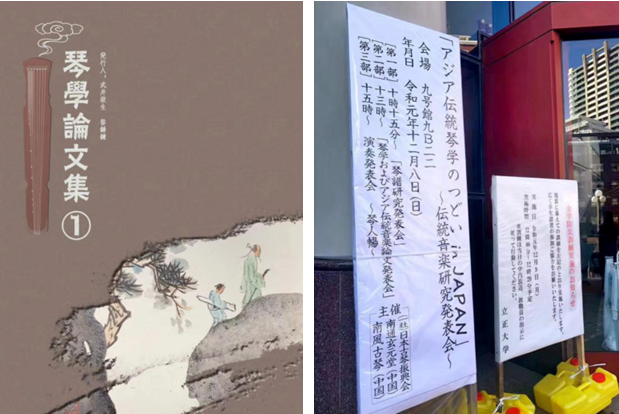 琴學論文集①
発行人：武井欲生
「アジア伝統琴学のつどい in JAPAN」
～伝統音楽研究発表会～
会場 九号館九B二二
年月日 令和元年十二月八日（日）
［第一部］十時十五分～「琴譜研究発表会」
［第二部］十三時～「琴学およびアジア伝統音楽論文発表会」
［第三部］十五時～ 演奏発表会 ～琴人暢～
主催 ［一社］日本古琴振興会
南道玄元堂（中国）
南風古琴（中国）
実施のお知らせ
立正大学